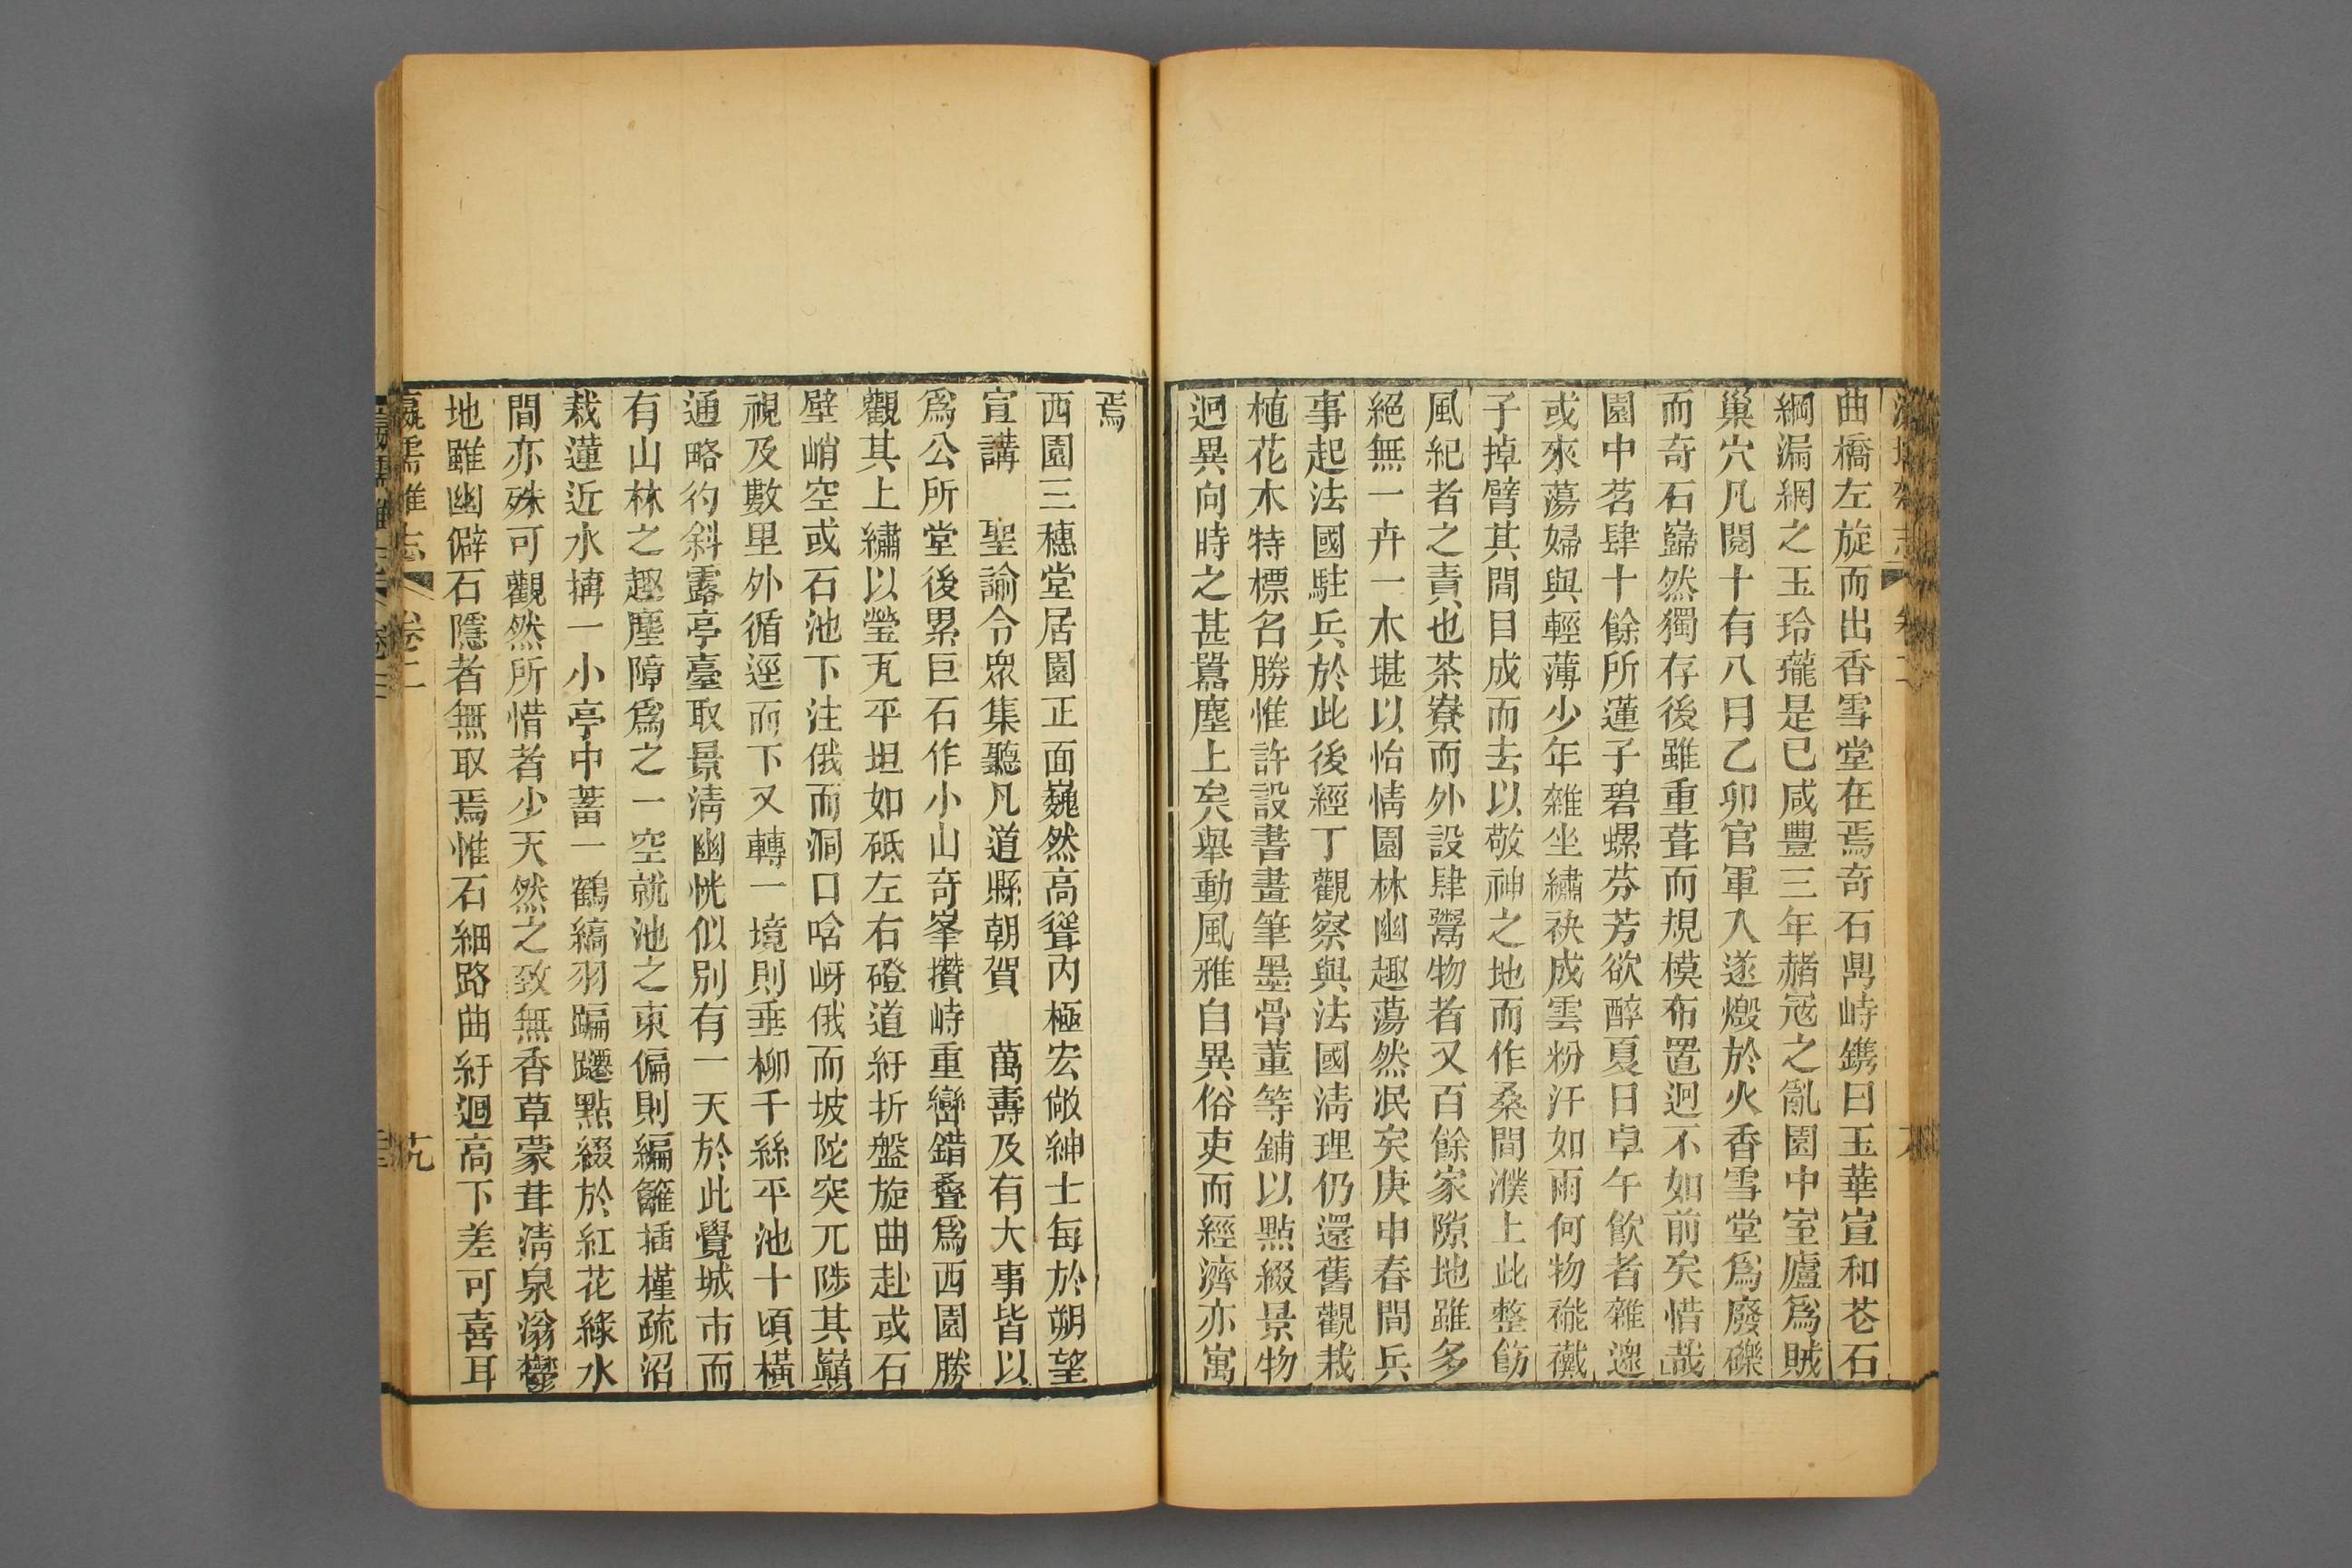 曲橋左旋而出香雪堂在焉奇石鼎峙鐫曰玉華宣和芲石
綱漏網之玉玲瓏是已咸豐三年赭冦之亂園中室廬爲賊
巢穴凡閱十有八月乙卯官軍入遂燬於火香雪堂爲廢礫
而奇石巋然獨存後雖重葺而規模布置迥不如前矣惜哉
園中茗肆十餘所蓮子碧螺芬芳欲醉夏日卓午飲者雜遝
或來蕩婦與輕薄少年雜坐繡袂成雲粉汗如雨何物褦襶
子掉臂其間目成而去以敬神之地而作桑間濮上此整飭
風紀者之責也茶寮而外設肆鬻物者又百餘家隙地雖多
絕無一卉一木堪以怡情園林幽趣蕩然泯矣庚申春間兵
事起法國駐兵於此後經丁觀察與法國淸理仍還舊觀栽
植花木特標名勝惟許設書畫筆墨骨董等鋪以點綴景物
迥異向時之甚囂塵上矣舉動風雅自異俗吏而經濟亦寓
焉
西園三穗堂居園正面巍然高聳內極宏敞紳士每於朔望
宣講　聖諭令衆集聽凡道縣朝賀　萬壽及有大事皆以
爲公所堂後累巨石作小山奇峯攢峙重巒錯疊爲西園勝
觀其上繡以瑩瓦平坦如砥左右磴道紆折盤旋曲赴或石
壁峭空或石池下注俄而洞口唅岈俄而坡陀突兀陟其巓
視及數里外循逕而下又轉一境則垂柳千絲平池十頃橫
通略彴斜露亭臺取景淸幽恍似別有一天於此覺城市而
有山林之趣塵障爲之一空就池之東偏則編籬插槿疏沼
栽蓮近水搆一小亭中蓄一鶴縞羽蹁躚點綴於紅花綠水
間亦殊可觀然所惜者少天然之致無香草蒙茸淸泉滃鬱
地雖幽僻石隱者無取焉惟石細路曲紆迴高下差可喜耳
瀛壖雜志　卷二